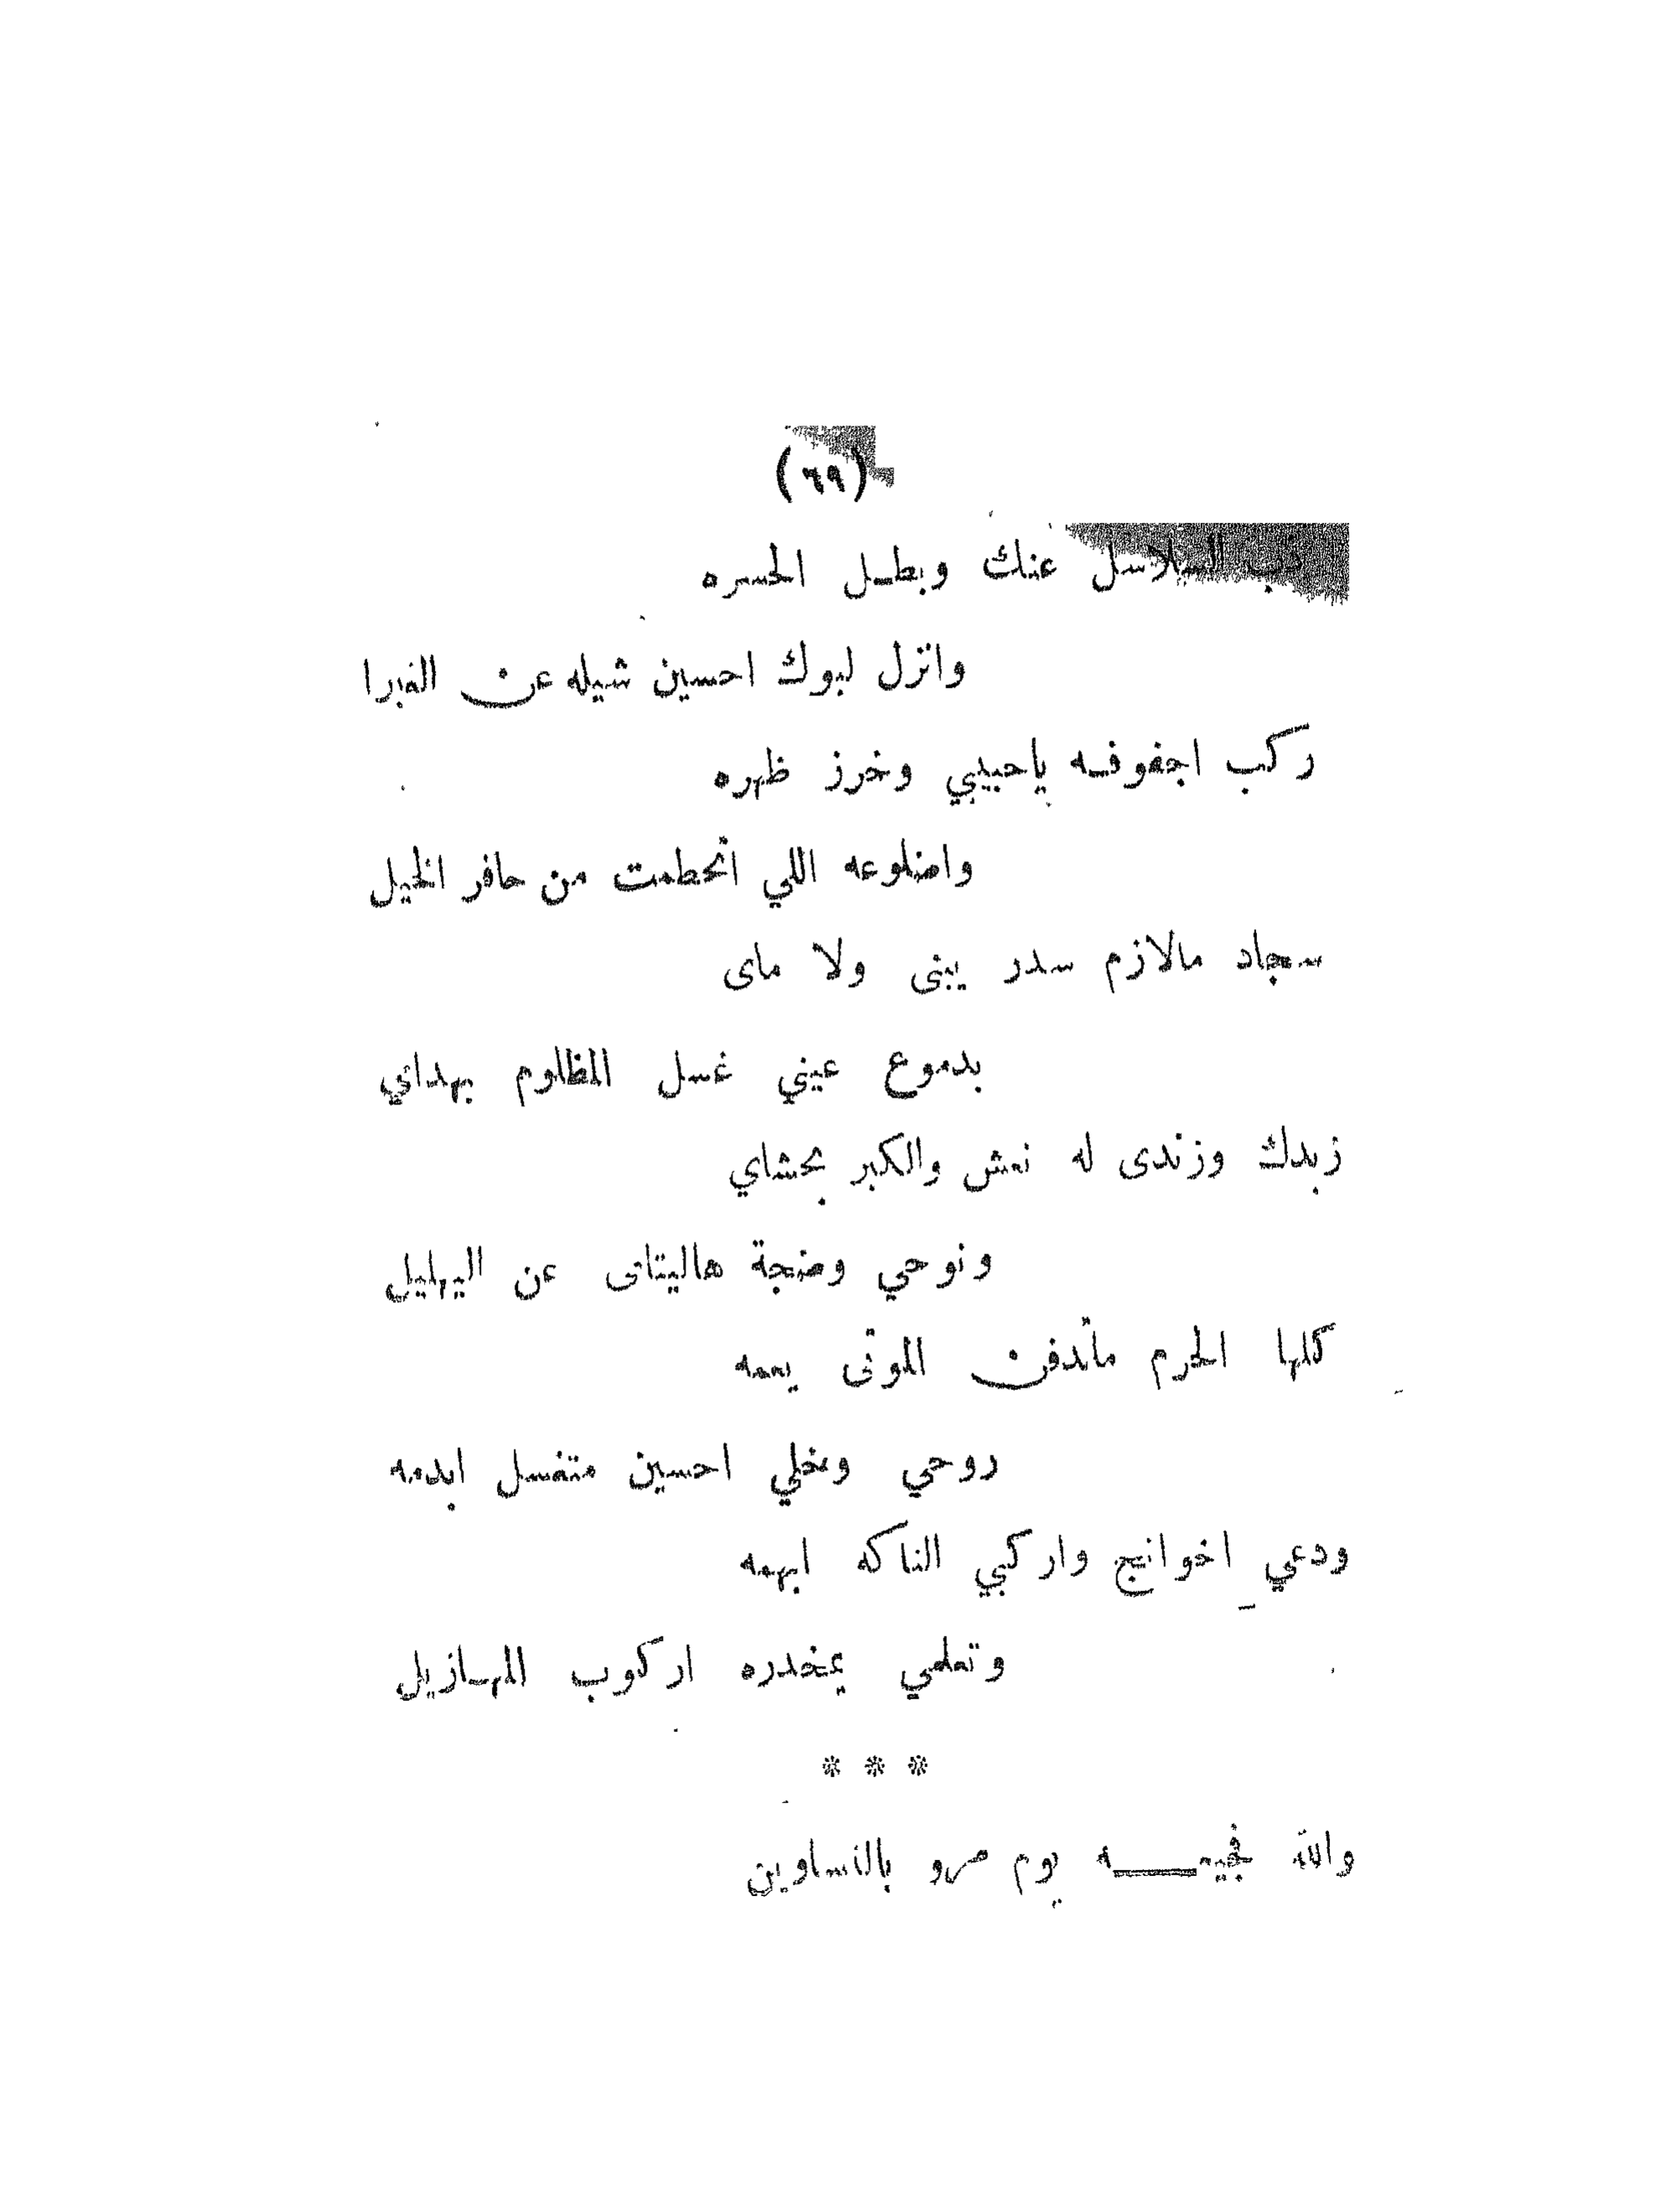 (٦٩)
ذب السلاسل عنك وبطل الحسره
وانزل لبوك احسين شيله عن الغبرا
ركب اجفوفه ياحبيبي وخرز ظهره
واضلوعه اللي انحطمت من حافر الخيل
سجاد مالازم سدر يبنى ولا ماى
بدموع عيني غسل المظلوم بهداي
زبدك وزندى له نعش والكبر بحشاي
ونوحي وضجة هاليتاى عن اليهليل
كلها الحرم ماتدفن الموتى يعمه
روحي وخلي احسين متغسل ابدمه
ودعي اخوانج واركبي الناكه ابهمه
وتعلمي يمخدره اركوب المهازيل
* * *
والله فجيعه يوم مرو بالنساوين